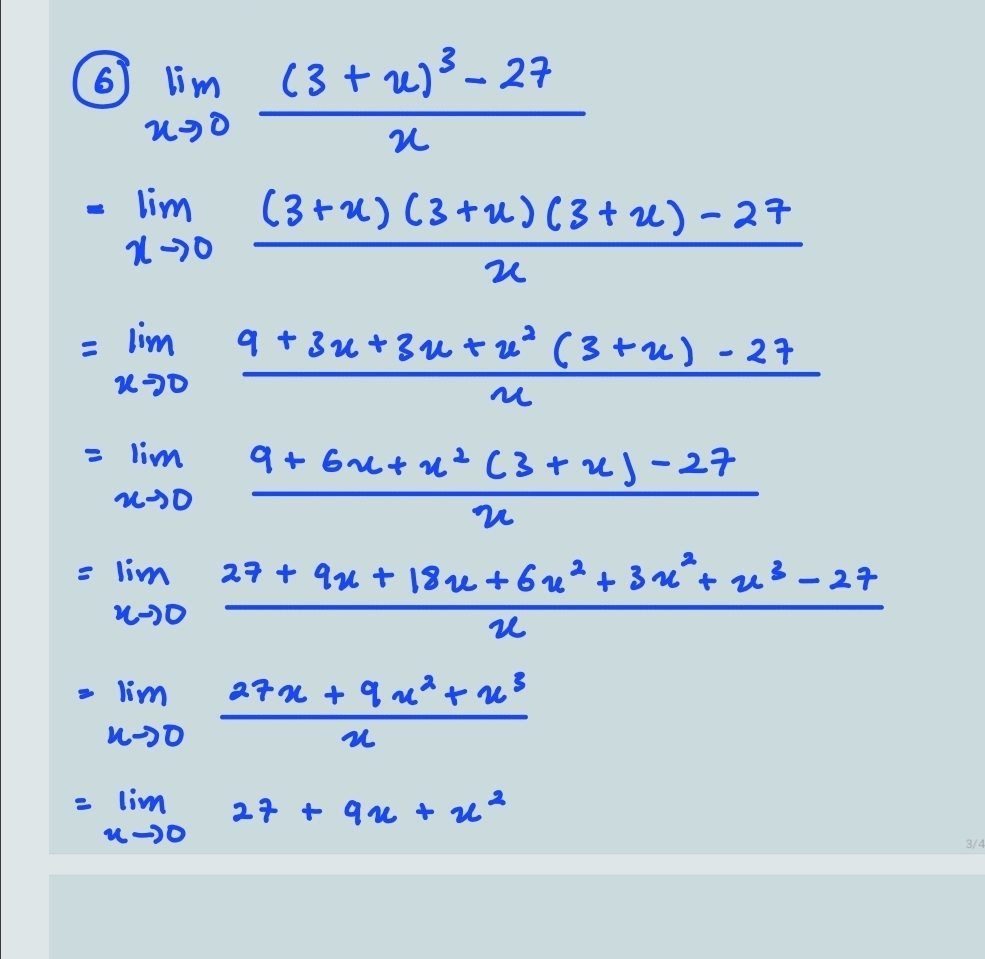 ⑥ lim x→0 ((3 + x)³ - 27) / x
= lim x→0 ((3+x)(3+x)(3+x) - 27) / x
= lim x→0 (9 + 3x + 3x + x² (3 + x) - 27) / x
= lim x→0 (9 + 6x + x² (3 + x) - 27) / x
= lim x→0 (27 + 9x + 18x + 6x² + 3x² + x³ - 27) / x
= lim x→0 (27x + 9x² + x³) / x
= lim x→0 27 + 9x + x²
3/4